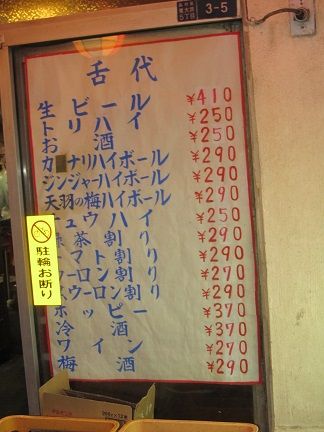 5丁目 3-5
舌代
生ビール ¥410
トリハイ ¥250
お酒 ¥250
カナリハイボール ¥290
ジンジャーハイボール ¥290
天羽の梅ハイボール ¥290
チュウハイ ¥250
茶割り ¥290
トマト割り ¥290
ウーロン割り ¥270
ウーロン割り ¥290
ホッピー ¥370
冷酒 ¥370
ワイン ¥270
梅酒 ¥290
駐輪お断り